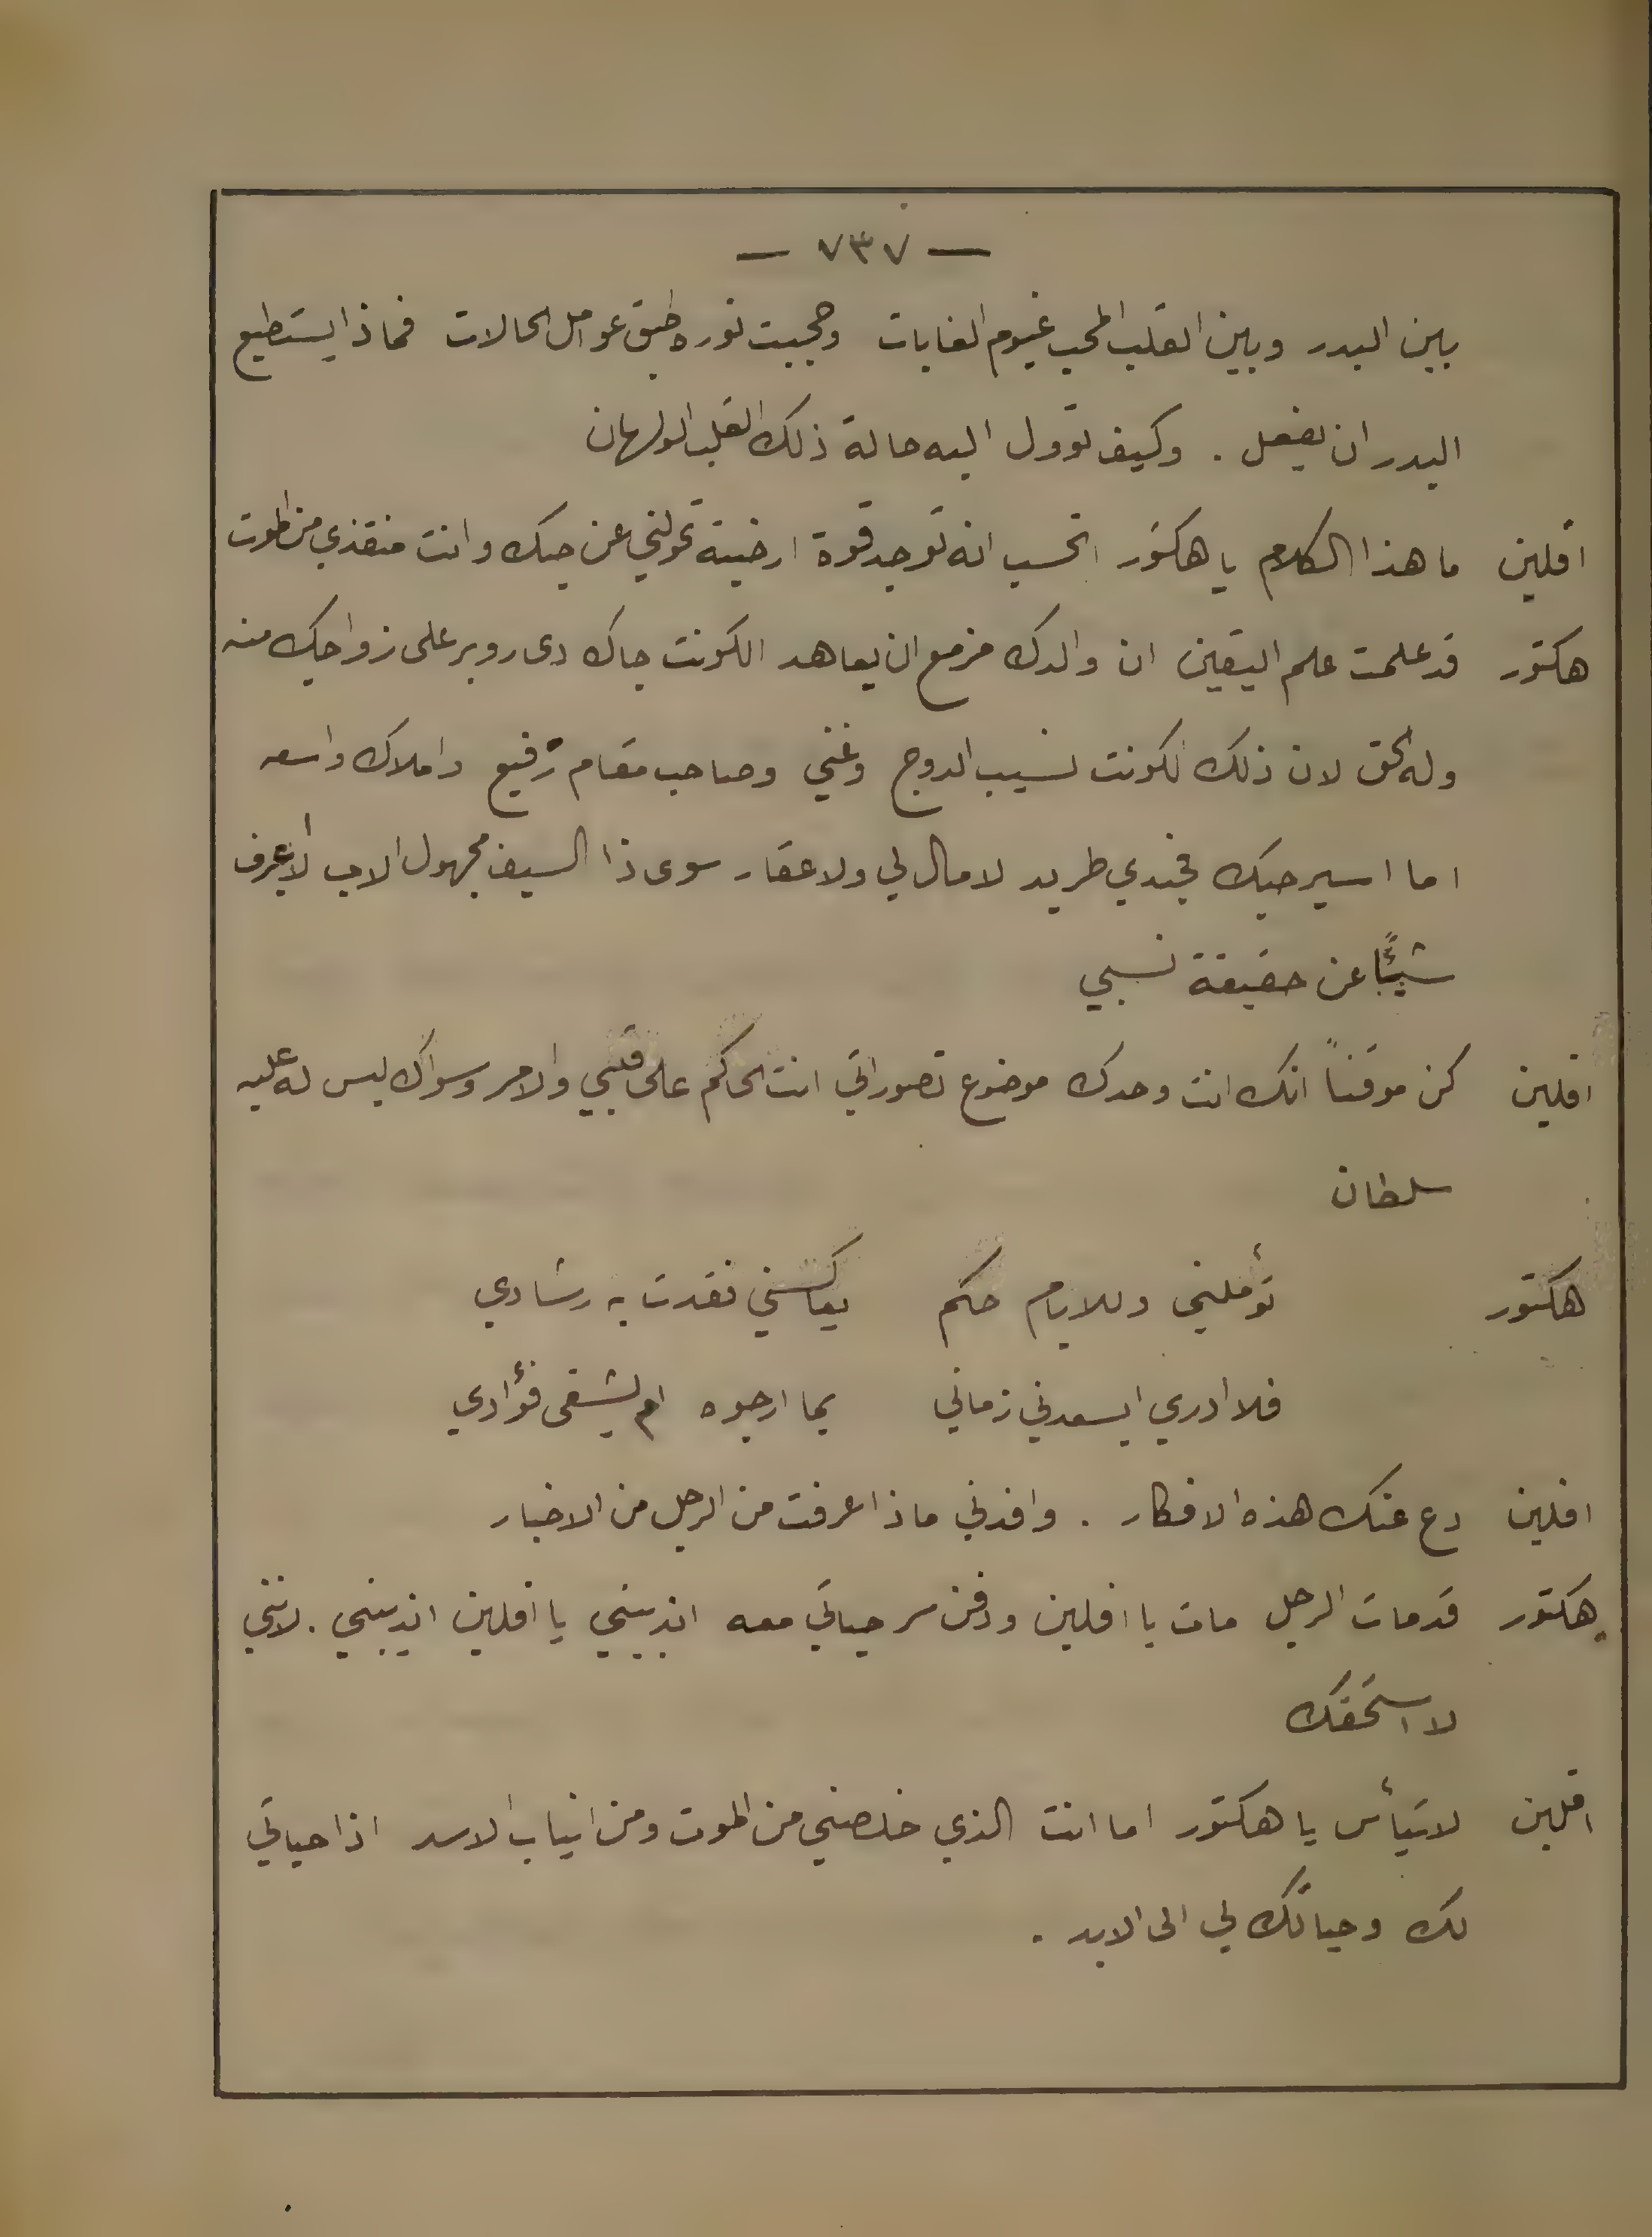 — ٧٣٧ —
بين البدر وبين القلب المحب غيوم الغايات وحجبت نوره طبق عوامل الحالات فماذا يستطيع
البدر ان يفعل . وكيف تؤول اليه حالة ذلك القلب الولهان
افلين ما هذا الكلام يا هكتور اتحسب انه توجد قوة ارضية تحولني عن حبك وانت منقذي من الموت
هكتور قد علمت علم اليقين ان والدك مزمع ان يعاهد الكونت جاك دى روبر على زواجك منه
وله الحق لان ذلك الكونت نسيب الدوج وغني وصاحب مقام رفيع واملاك واسعه
اما اسير حبك فجندي طريد لا مال لي ولا عقار سوى ذا السيف مجهول الاب لا يعرف
شيئًا عن حقيقة نسبي
افلين كن موقناً انك انت وحدك موضوع تصوراتي انت الحاكم على قلبي والامر وسواك ليس له عليه
سلطان
هكتور تؤملني وللايام حكم يعاكسني فقدت به رشادي
فلا ادري ايسعدني زماني بما ارجوه ام يشقى فؤادي
افلين دع عنك هذه الافكار . وافدني ماذا عرفت من الرجل من الاخبار
هكتور قد مات الرجل مات يا افلين ودفن سر حياتي معه اندبيني يا افلين اندبيني . لانني
لا استحقك
افلين لا تيأس يا هكتور اما انت الذي خلصني من الموت ومن انياب الاسد اذا حياتي
لك وحياتك لي الى الابد .